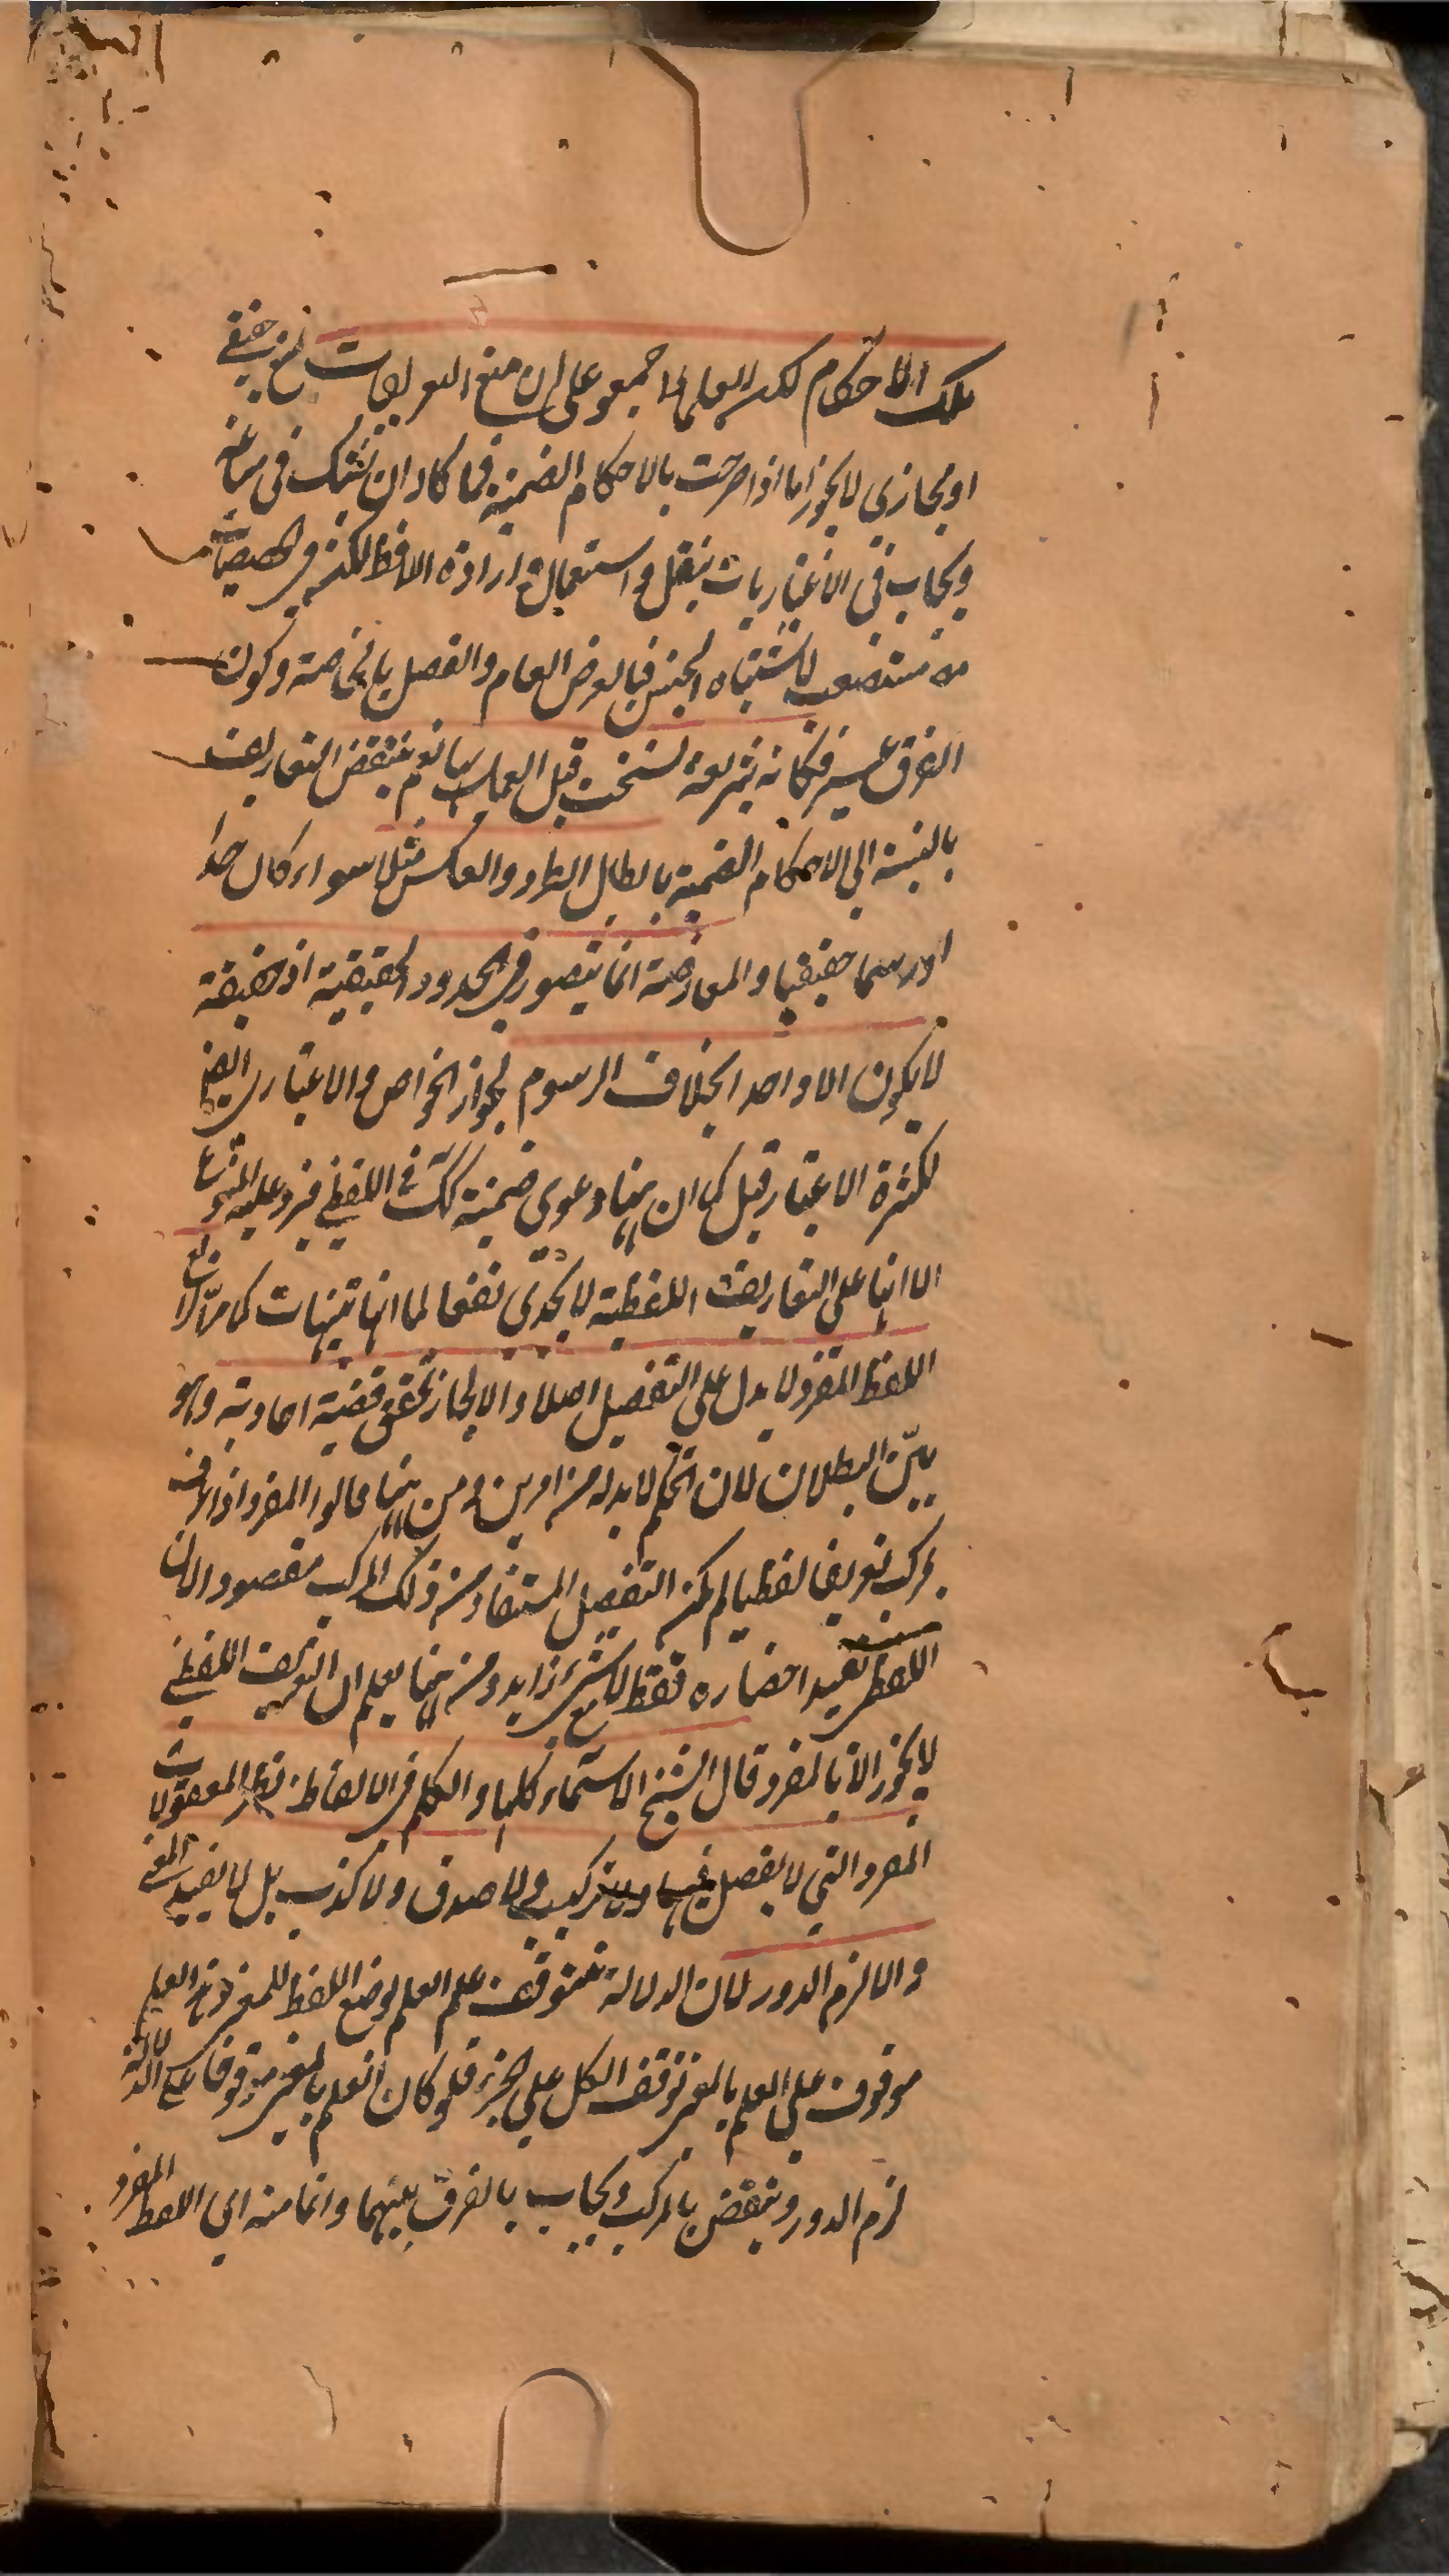 تلك الاحكام لكن العلماء اجمعوا على ان منع التعريفات منع حقيقي
او مجازي لا يجوز اما اذا صرحت بالاحكام الضمنية فما كاد ان يشك في ساغه
ويجاب في الاعتباريات بنقل واستعمال وارادة الافظ لكنه في الحقيقيات
منه مستصعب لاشتباه الجنس بالعرض العام والفصل بالخاصة وكون
الفرق عسير فكانه شريعة نسخت قبل العمل بها نعم ينتقض التعاريف
بالنسبة الى الاحكام الضمنية بابطال الطرد والعكس مثلا سواء كان حدا
او رسما حقيقيا والمعارضة انما يتصور في الحدود الحقيقية اذ حقيقة
لا يكون الا واحد بخلاف الرسوم لجواز الخواص والاعتباري ايضا
لكثرة الاعتبار قيل كما ان ههنا دعوى ضمنية كك في اللفظي فيرد عليه المنوع
الا انها على التعاريف اللفظية لا يجدى نفعا لما انها تنبيهات كما مر
اللفظ المفرد لا يدل على التفصيل اصلا والا لجاز تحقق قضية احادية وهو
بين البطلان لان الحكم لا بد له من امرين ومن ههنا قالوا المفرد اذا عرف
بمركب تعريفا لفظيا لم يكن التفصيل المستفاد من ذلك المركب مقصودا لان
اللفظ يفيد احضاره فقط لا مع شئ زايد ومن ههنا يعلم ان التعريف اللفظي
لا يجوز الا بالمفرد قال الشيخ الاسماء كلها والكلم في الالفاظ نظير المعقولات
المفرد التي لا يفصل فيها ولا تركيب ولا صدق ولا كذب بل لا يفيد المعنى
والا لزم الدور لان الدلالة تتوقف على العلم بوضع اللفظ للمعنى وهذا العلم
موقوف على العلم بالمعنى توقف الكل على الجزء فلو كان العلم بالمعنى موقوفا على الدلالة
لزم الدور وينقض بالمركب ويجاب بالفرق بينهما وانما منه اي اللفظ المفرد